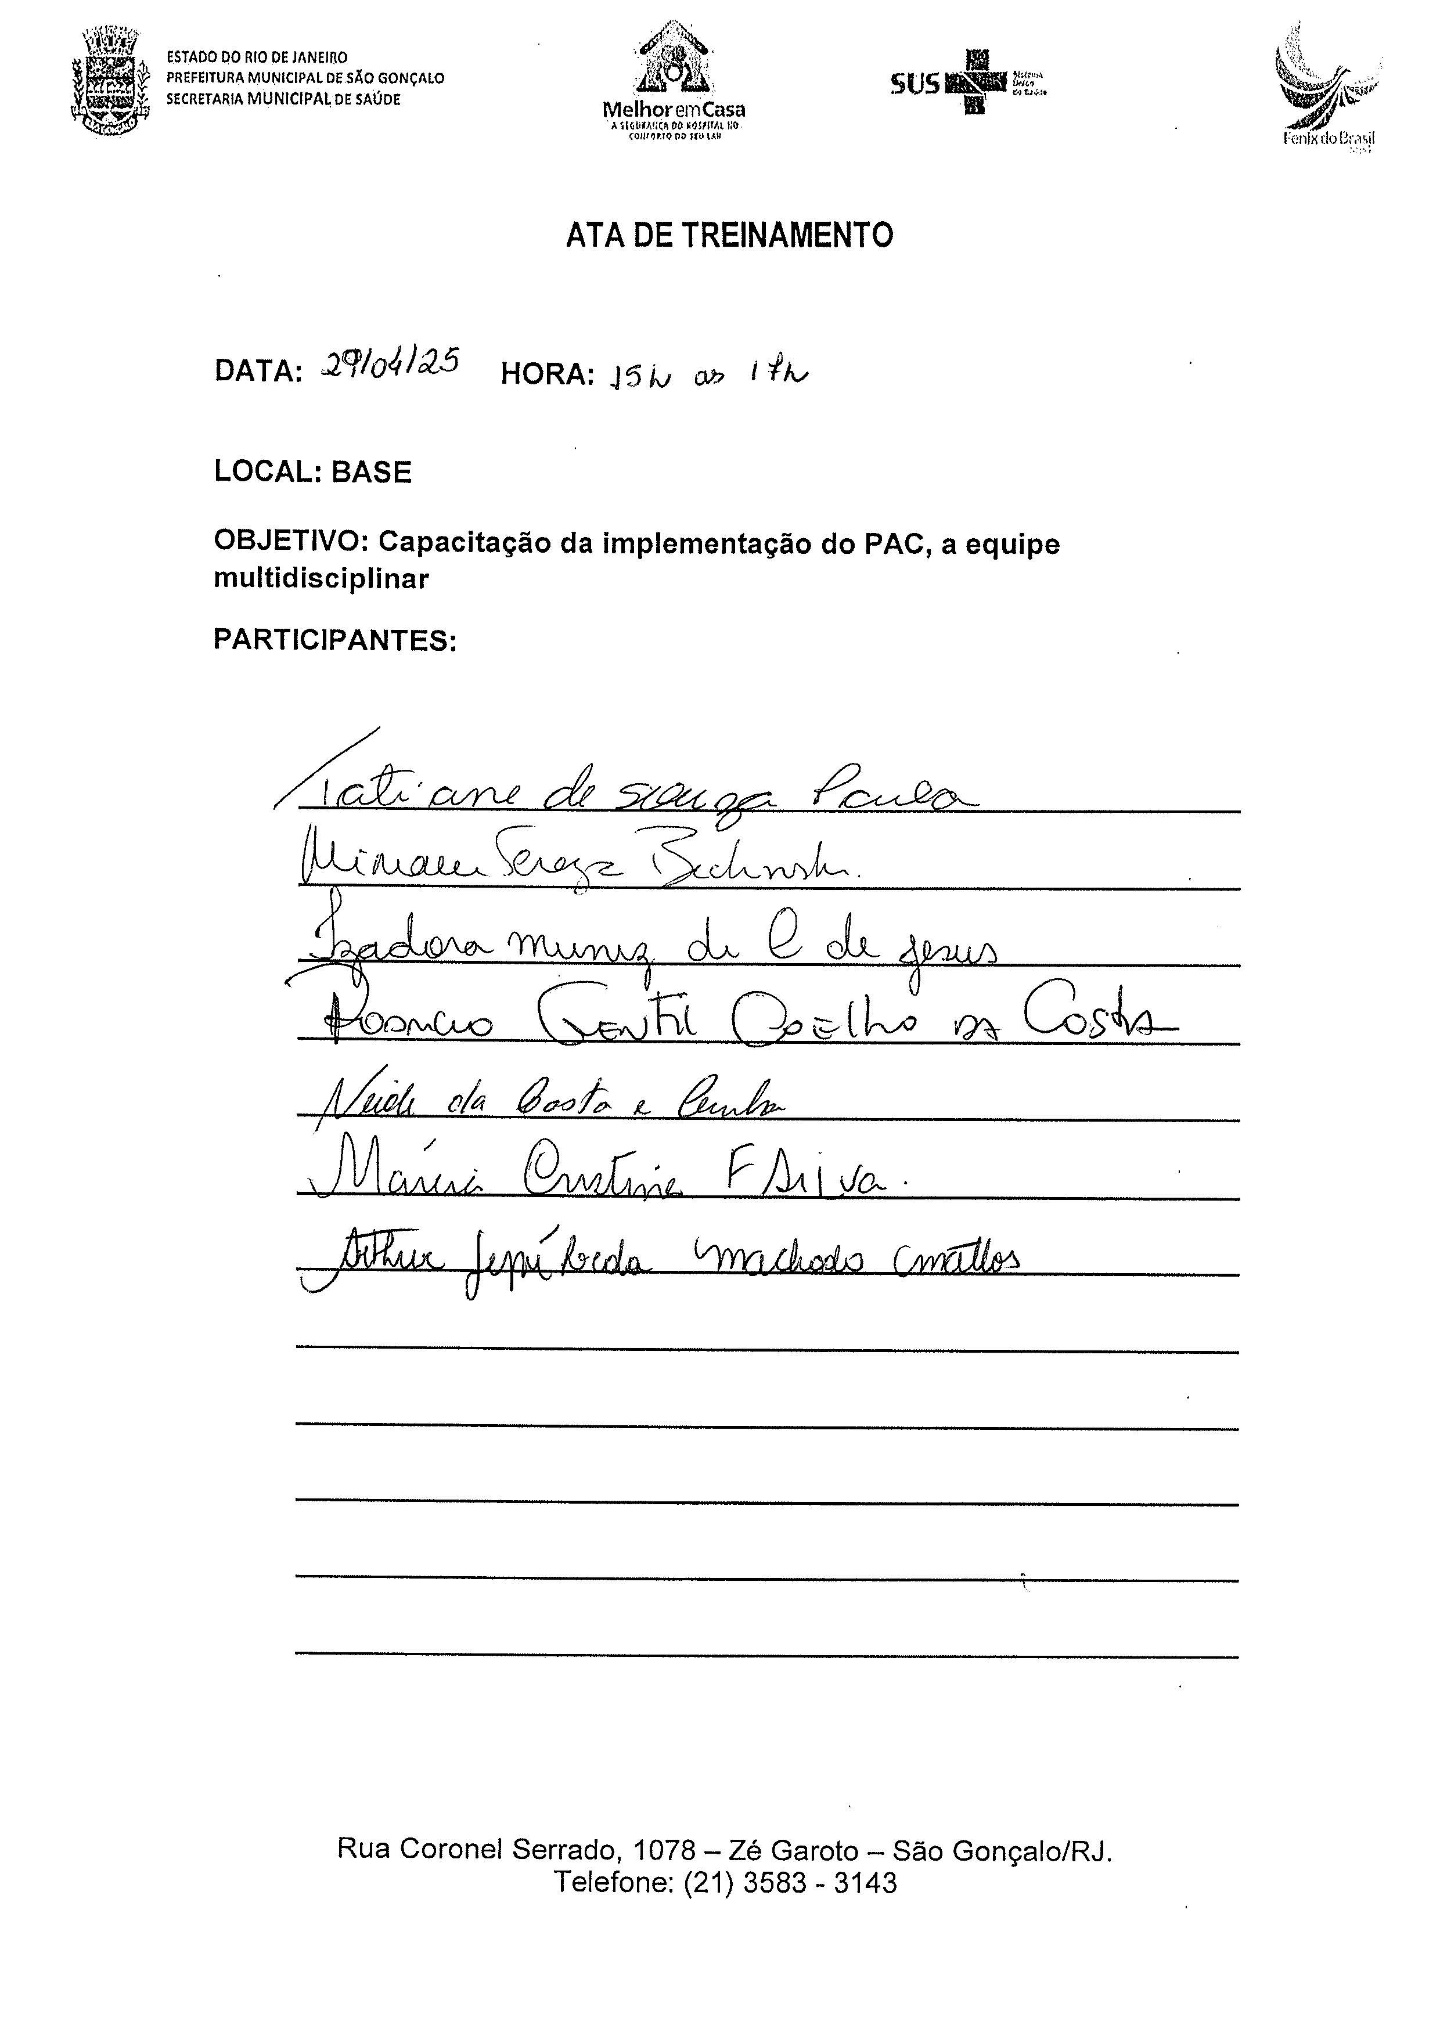 ESTADO DO RIO DE JANEIRO
PREFEITURA MUNICIPAL DE SÃO GONÇALO
SECRETARIA MUNICIPAL DE SAÚDE
Melhor em Casa
A SEGURANÇA DO HOSPITAL NO
CONFORTO DO SEU LAR
SUS
Sistema
Único
de Saúde
Fenix do Brasil
ATA DE TREINAMENTO
DATA: 29/04/25 HORA: 15h as 17h
LOCAL: BASE
OBJETIVO: Capacitação da implementação do PAC, a equipe
multidisciplinar
PARTICIPANTES:
Tatiane de souza Paula
Izadora muniz de C de jesus
GENTIL COElho DA COSTA
Neide da Costa e Cunha
Márcia Cristina F Silva.
Arthur machado mattos
Rua Coronel Serrado, 1078 – Zé Garoto – São Gonçalo/RJ.
Telefone: (21) 3583 - 3143